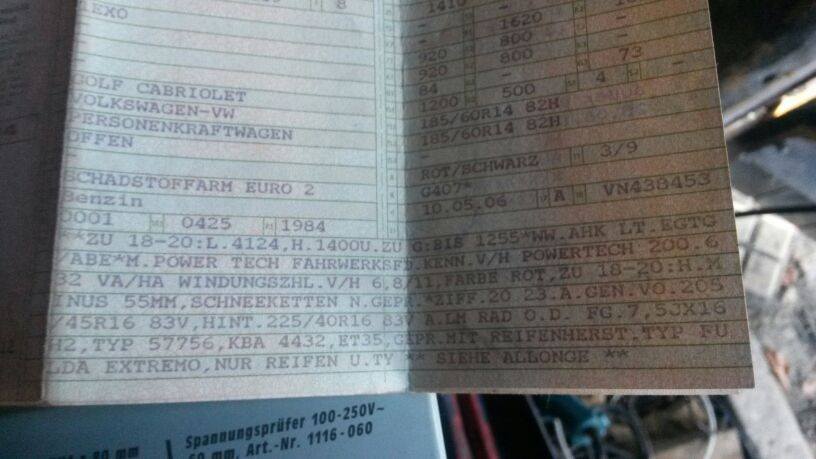 8
EXO
GOLF CABRIOLET
VOLKSWAGEN-VW
PERSONENKRAFTWAGEN
OFFEN
-
SCHADSTOFFARM EURO 2
Benzin
0001 0425 1984
1410 -
- 1620
- 800 -
920 800 -
920 - 73
84 - 4 -
1200 500
185/60R14 82H
185/60R14 82H
-
ROT/SCHWARZ 3/9
G407*
10.05.06 A VN438453
**ZU 18-20:L.4124,H.1400U.ZU G:BIS 1255*WW.AHK LT.EGTG
/ABE*M.POWER TECH FAHRWERKSFD.KENN.V/H POWERTECH 200.6
32 VA/HA WINDUNGSZHL.V/H 6,8/11,FARBE ROT,ZU 18-20:H.M
INUS 55MM,SCHNEEKETTEN N.GEPR.*ZIFF.20 23.A.GEN.VO.205
/45R16 83V,HINT.225/40R16 83V A.LM RAD O.D. FG.7,5JX16
H2,TYP 57756,KBA 4432,ET35,GEPR.MIT REIFENHERST.TYP FU
LDA EXTREMO,NUR REIFEN U.TY ** SIEHE ALLONGE **
80 mm
Spannungsprüfer 100-250V~
60 mm, Art.-Nr. 1116-060